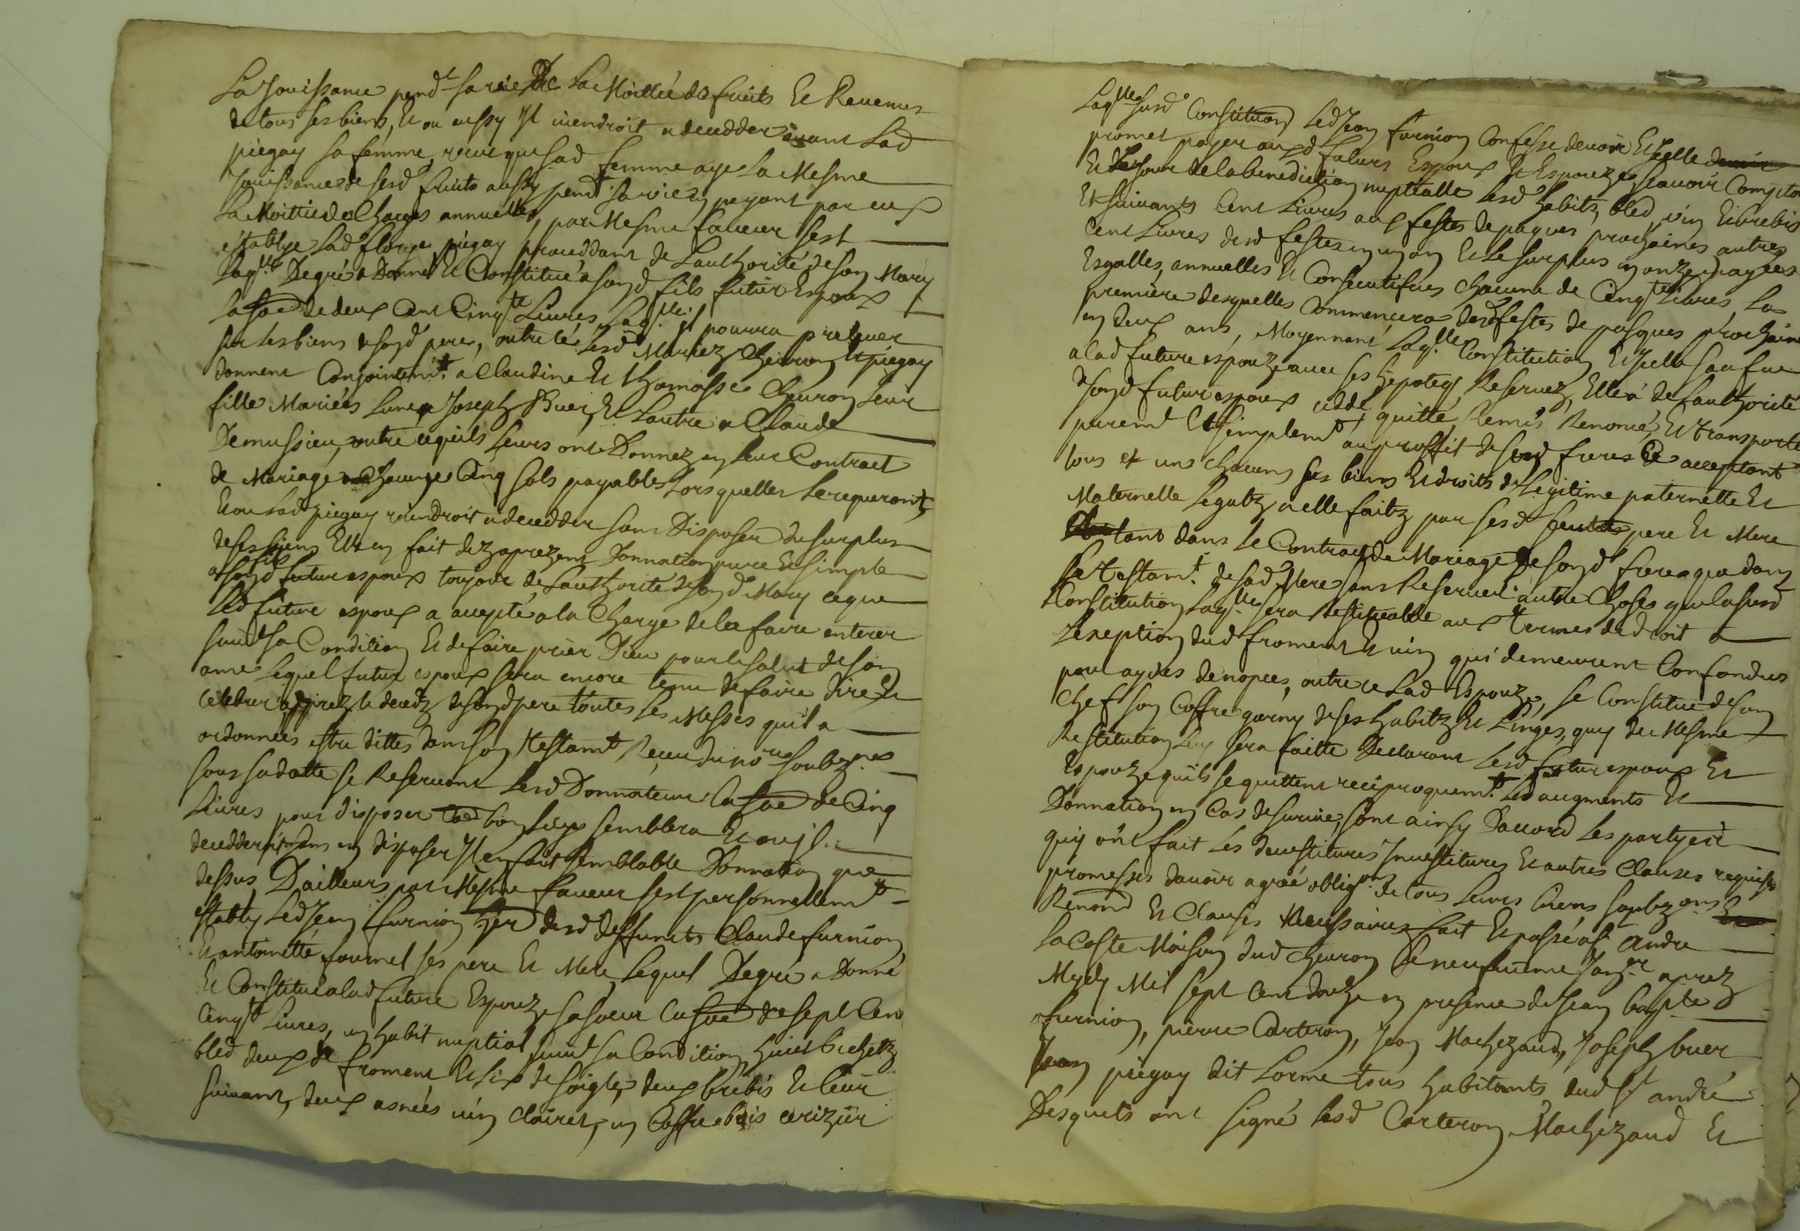 La Jouissance pend.t sa vie De La Moittié des fruits Et Revenus
de tous ses biens, Et ou aussy Il viendroit a decedder avant Lad
piegay sa femme, veut que sad femme aye La Mesme
Jouissance de sesd fruits aussy pend.t sa vie en payant par eux
La Moittié des Charges annuelles, par Mesme faveur s'est
establye Lad piegay proceddant de L'authorité de son Mary
Laq.lle De gré a Donné Et Constitué a sond fils futur Espoux
La so.e de deux Cent Cinq.te Livres Laq.lle il pourra prelever
sur Les biens de sond pere, outre ce Lesd Mariez Chevron Et piegay
donnent Conjointem.t a Claudine Et Thomasse Chevron Leur
fille Mariées L'une a Joseph Buer, Et L'autre a Claude
Demussieu, outre ce qu'ils Leurs ont Donnez en Leur Contract
de Mariage a Chacune Cinq sols payables Lorsquelles Le requeront,
Et ou Lad piegay viendroit a decedder sans Disposer du surplus
de ses biens Elle en fait dez a present Donnation pure Et simple
a sond fils futur espoux toujour de L'authorité de sond Mary ce que
Led futur espoux a accepté a la Charge de la faire enterer
suiv.t sa Condition Et de faire prier Dieu pour le salut de son
ame Lequel futur espoux sera encore tenu de faire dire Et
celebrer apprez le decedz de sond pere toutes Les Messes qu'il a
ordonnées estre dittes dans son testam.t Receu du no.re soubz.né
sous sa datte se Reservant Lesd Donnateurs La so.e de Cinq
Livres pour disposer bon Leur semblera Et ou Il
decedderoit sans en disposer Il en fait semblable Donnation que
dessus, D'ailleurs par Mesme faveur s'est personnellem.t
estably Led Jean furnion her desd deffunts Claude furnion
Et antoinette fournel ses pere Et Mere Lequel De gré a Donné
Et Constitué a lad future Espouze sa soeur La so.e de sept Cent
Cinq.te Livres, un habit nuptial suiv.t sa Condition, huict bichetz
bled deux de froment Et six de soigle, deux brebis Et Leur
suivant, deux asnées vin Clairet, un Coffre bois cerizier
Laq.lle susd Constitution Led Jean furnion Confesse devoir Et Icelle
promet payer ausd futurs Espoux Et Espouze sçavoir Comptant
Et Le Jour de la benediction nuptialle Lesd habitz, bled, vin Et brebis
Et suivants Cent Livres aux festes de paques prochaines autres
Cent Livres desd festes en un an Et Le surplus en onze payes
Esgalles, annuelles Et Consecutifves chacune de Cinq.te Livres La
premiere desquelles Commencera desd festes de pasques prochaines
en deux ans, Moyennant Laq.lle Constitution Et Icelle sauf due
a lad future espouze avec ses hipoteqs Reservez, Elle a de L'authorité
de sond futur espoux ceddé quitté, Remis Renoncé, Et transporté
purem.t Et simplem.t au proffit de sond frere Ce acceptant
tous et uns chacuns ses biens Et droits de Legitime paternelle Et
Maternelle Legatz a elle faitz par sesd pere Et Mere
tant dans Le Contract de Mariage de sond frere que dans
Le testam.t de sad Mere sans Reserver autre Choses que la susd
Constitution Laq.lle sera Restituable aux termes de droit a
L'exeption dud froment Et vin qui demeurent Confondus
pour aydes de nopces, outre ce Lad Espouze se Constitue de son
Chef son Coffre garny de ses habitz Et Linges, quy de Mesme
Restitution Luy sera faitte Declarant Lesd futur espoux Et
Espouze qu'ils se quittent reciproquem.t Les augments Et
Donnation en Cas de survie, sont ainsy D'accord Les partyes
quy ont fait Les devestitures Investitures Et autres Clauses requises
promesses d'avoir agreé oblig.on de tous Leurs biens soubz.ons
Renond Et Clauses Necessaires fait Et passé a S.t andré
La Coste Maison dud Chevron Le neufvieme Janv.er aprez
Mydy Mil sept Cent douze en presence de Jean bapt.e
furnion, pierre Carteron, Jean Machizaud, Joseph buer
Jean piegay dit Lorme tous habitants dud S.t andré
Desquels ont signé Lesd Carteron Machizaud Et